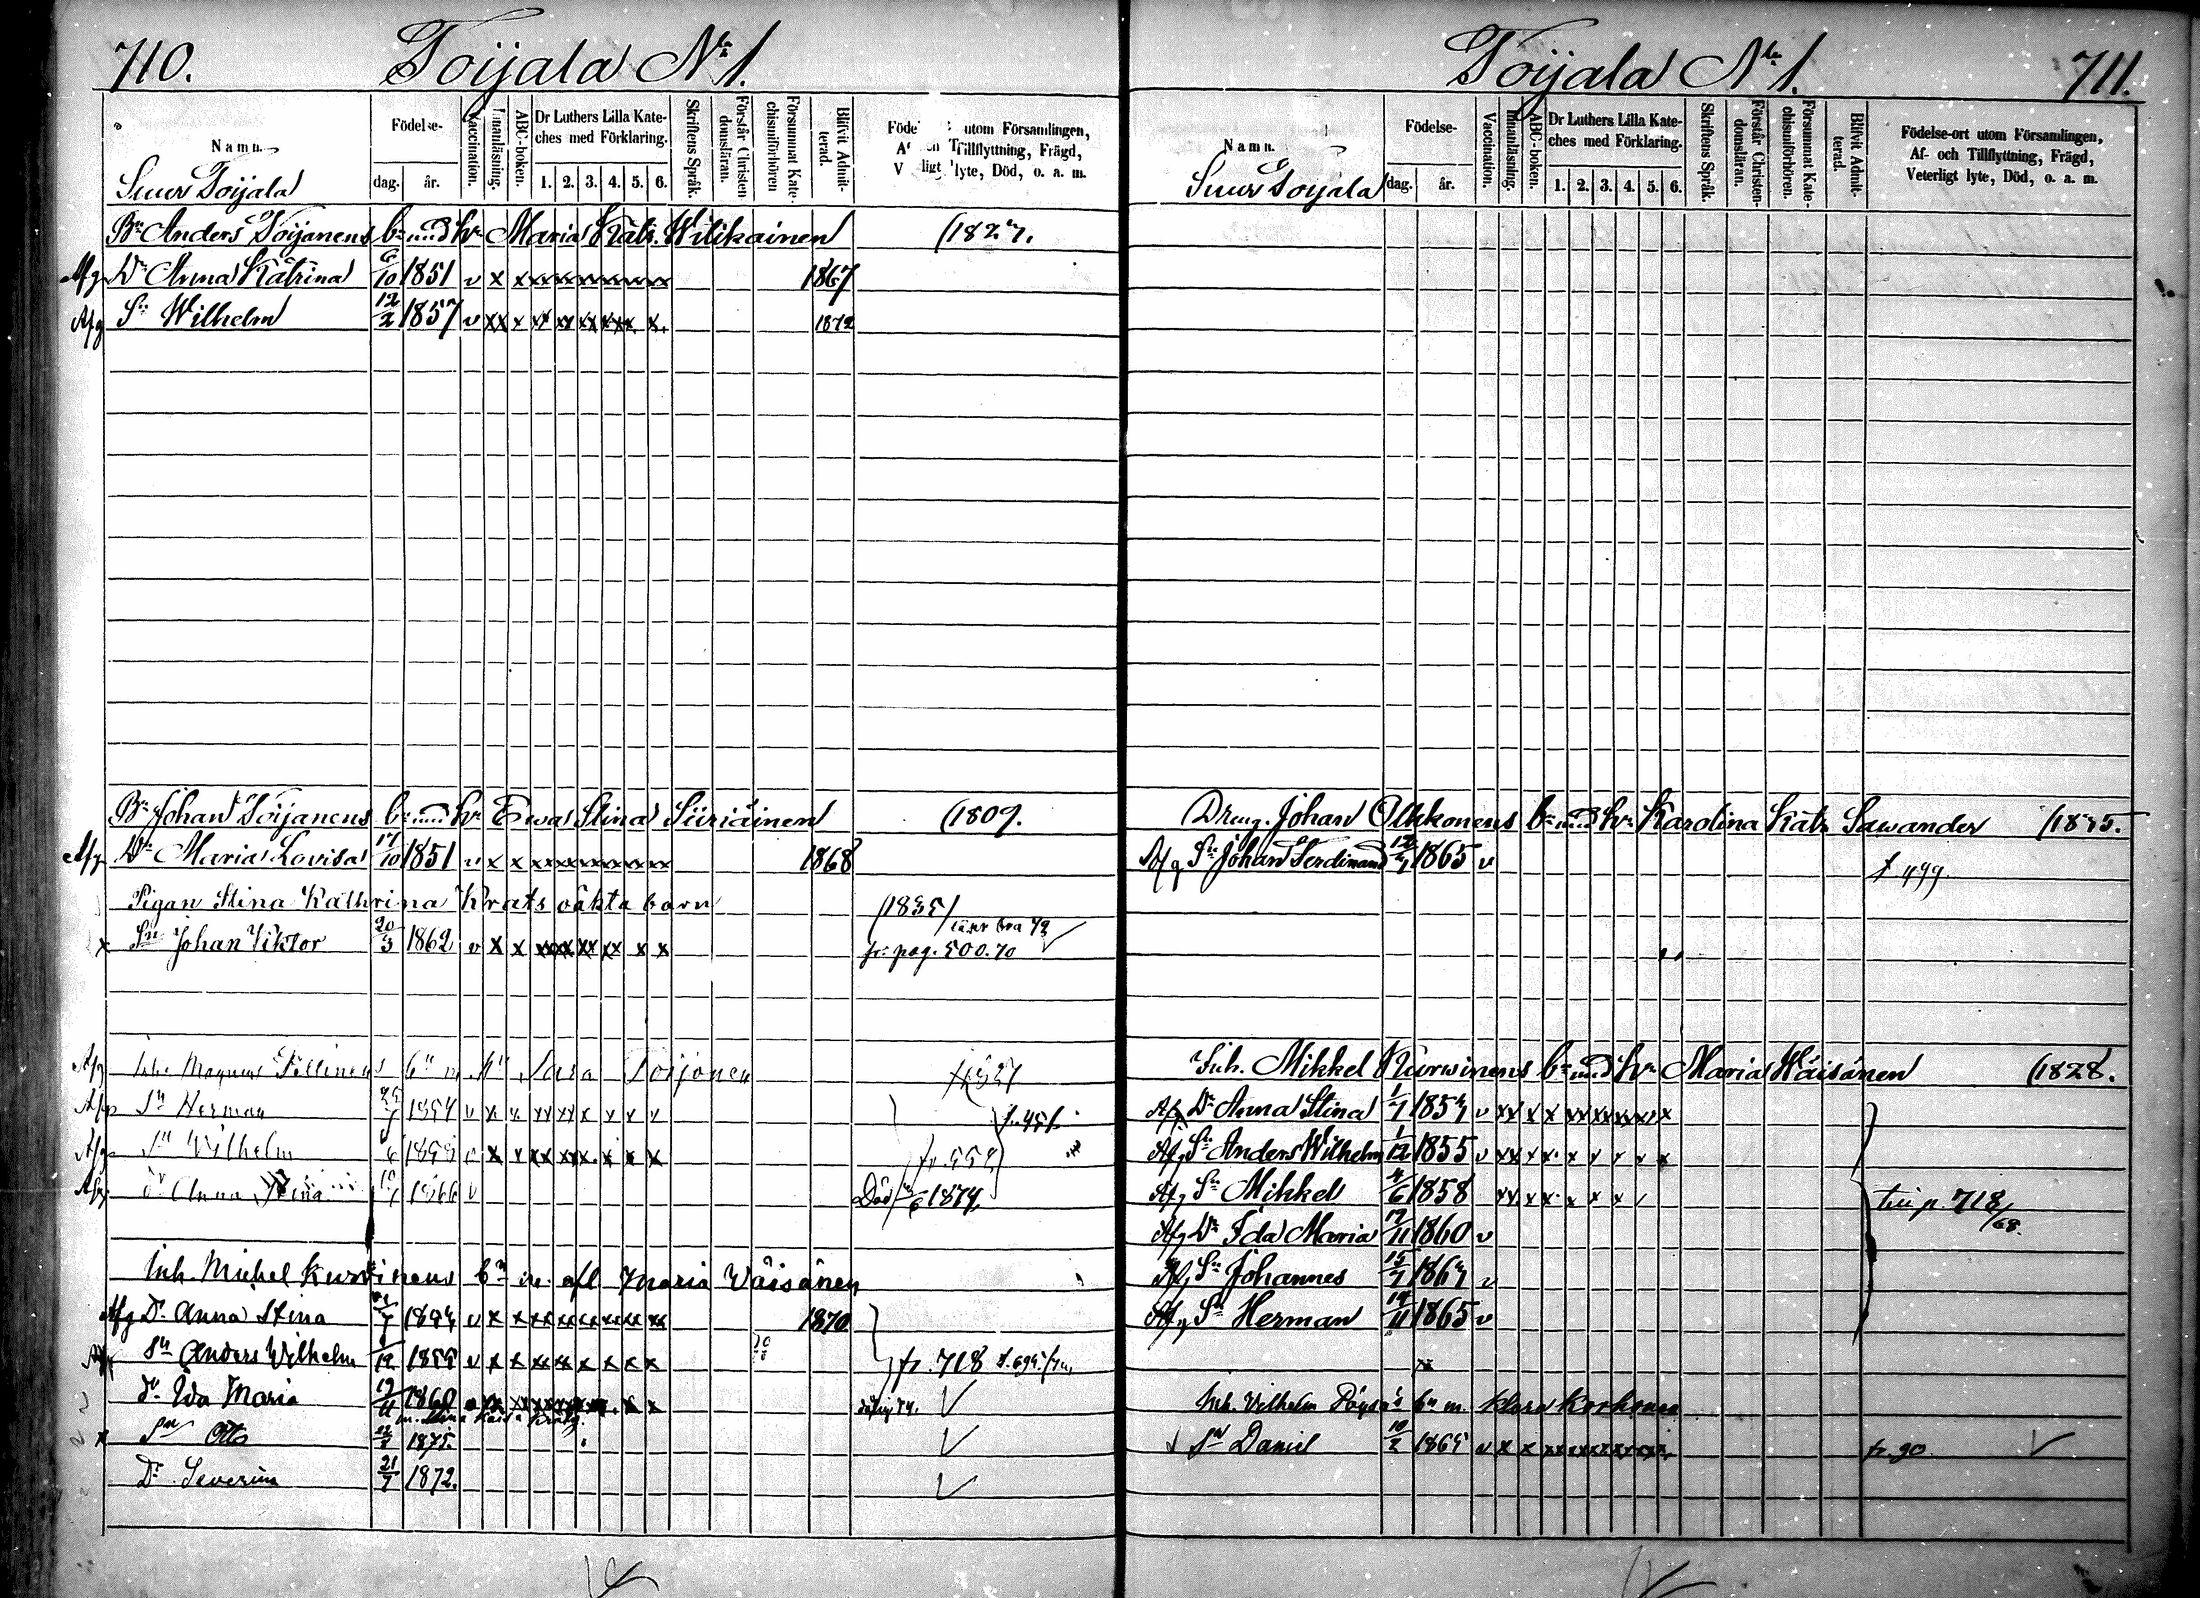 710. Toijala No 1.
Namn.
Födelse-
dag. år.
Vaccination.
Innanläsning.
ABC-boken.
Dr Luthers Lilla Kate-
ches med Förklaring.
1. 2. 3. 4. 5. 6.
Skriftens Språk.
Förstår Christen
domsläran.
Försummat Kate-
chismiförhören
Blifvit Admit-
terad.
utom Församlingen,
Tillflyttning, Frägd,
lyte, Död, o. a. m.
Suur Toijala
Bn Anders Toijanens bn med hu Maria Katr. Wilikainen (1827.
Afg Dr Anna Katrina 6/10 1851 v x x xx xx xx xx xx xx 1867
Afg Sn Wilhelm 12/2 1857 v xx x xx xx xx xx x. x. 1872
Bn Johan Toijanens bn med hu Ewa Stina Siiriäinen (1809.
Afg Dr Maria Lovisa 17/10 1851 v x x xx xx xx xx xx xx 1868
Pigan Stina Kathrina Krats oäkta barn (1835)
x Sn Johan Viktor 20/3 1862 v x x xx xx xx xx x x fr. pag. 500.70
Afg Inh. Magnus bn m. hu Sara Toijonen
Afg Sn Herman 1854 v x x xx xx x x x v fr. 451.
Afg Sn Wilhelm v x x xx xx x. x x x
Afg dr Anna Stina 1866 v Död 1874
Inh. Michel Kurvinens bn m. afl Maria Wäisänen
Afg Dr Anna Stina 1/7 1854 v x x xx xx xx xx xx xx 1870
Sn Anders Wilhelm 1/12 1855 v x x xx xx x x x x fr. 718
dr Ida Maria 17/11 1860
x Sn Otto 12/ 1875.
Dr Severina 21/7 1872.
Toijala No 1. 711.
Namn.
Födelse-
dag. år.
Vaccination.
Innanläsning.
ABC-boken.
Dr Luthers Lilla Kate-
ches med Förklaring.
1. 2. 3. 4. 5. 6.
Skriftens Språk.
Förstår Christen-
domsläran.
Försummat Kate-
chismiförhören.
Blifvit Admit-
terad.
Födelse-ort utom Församlingen,
Af- och Tillflyttning, Frägd,
Veterligt lyte, Död, o. a. m.
Suur Toijala
Dreng. Johan Olkkonens bn med hu Karolina Katr Sawander (1835.
Afg Sn Johan Ferdinand 1865 v t 499.
Inh. Mikkel Kurwinens bn med hu Maria Wäisänen (1828.
Afg Dr Anna Stina 1/7 1854 v xx x x xx xx xx x x
Afg Sn Anders Wilhelm 1/12 1855 v xx x x. x x x x x
Afg Sn Mikkel 4/6 1858 xx x x. x x x till p. 718/68.
Afg Dr Ida Maria 17/11 1860 v
Afg Sn Johannes 15/7 1864 v
Afg Sn Herman 19/11 1865 v
Inh. Vilhelm Pöysä's bn m. Klara Korhonen
Sn Daniel 10/2 1865 v x x xx xx xx xx xx xx fr. 90